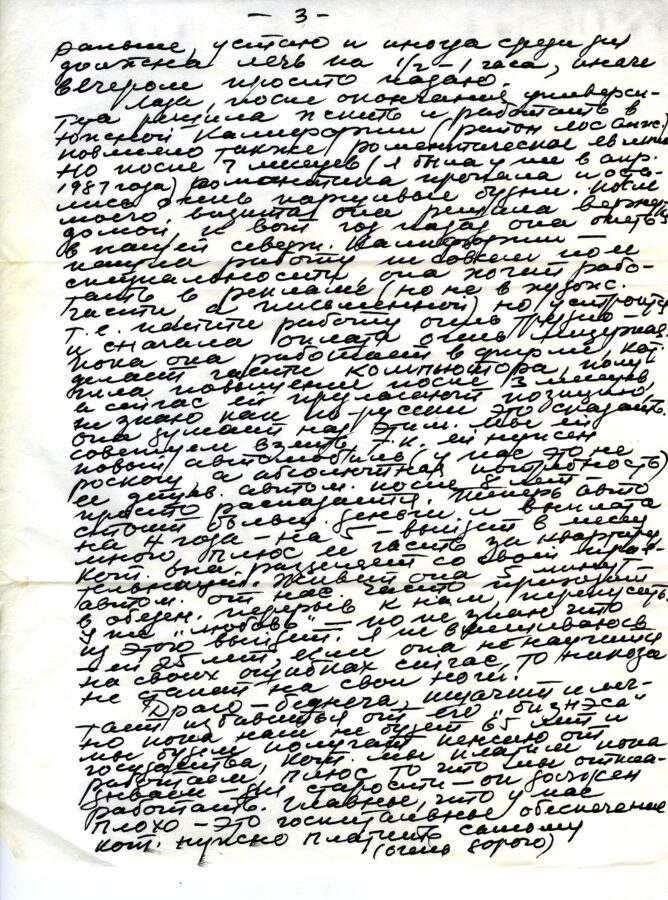 - 3 -
раньше, устаю и иногда среди дня
должна лечь на 1/2 - 1 часа, иначе
вечером просто падаю.
после окончания универси-
тета решила жить и работать в
Южной Калифорнии (район Лос Анж.)
повлияло также романтическое
но после 7 месяцев (я была у нее в апр.
1987 года) романтика пропала и оста-
лись очень паршивые будни. После
моего визита она решила вернут.
домой и вот год назад она опять
в нашей северн. Калифорнии -
нашла работу не совсем по ее
специальности, она хочет рабо-
тать в рекламе (но не в худож.
части а письменной) но устроится
т.е. найти работу очень трудно -
и сначала оплата очень мизерная.
Пока она работает в фирме, кот.
делает части компьютора, полу-
чила повышение после 3 месяцев
и сейчас ей предлагают позицию,
не знаю как по-русски это сказать.
Она думает над этим. Мы ей
советуем взять т.к. ей нужен
новый автомобиль (у нас это не
роскош а абсолютная потребность)
ее автом. после 8 лет
просто распадается. Теперь авто
стоит больш. деньги и выплата
на 4 года - на 5 - выйдет в месяц
много плюс ее часть за квартиру
кот. она разделяет со своей
Живет она 5 минут
автом. от нас. Часто приходит
в обеден. перерыв к нам перекусить.
У нее "любовь" - но не знаю что
из этого выйдет. Я не вмешиваюсь
ей 25 лет, если она не научится
на своих ошибках сейчас, то никогда
не станет на свои ноги.
Драго - бедняга, ишачит и меч-
тает избавиться от его "бизнэса"
но пока нам не будет 65 лет и
мы будем получать пенсию от
государства, кот. мы платим пока
работаем, плюс то что мы откла-
дываем - для старости - он должен
работать. Главное, что у нас
плохо - это госпитальное обеспечение
кот. нужно платить самому
(очень дорого)